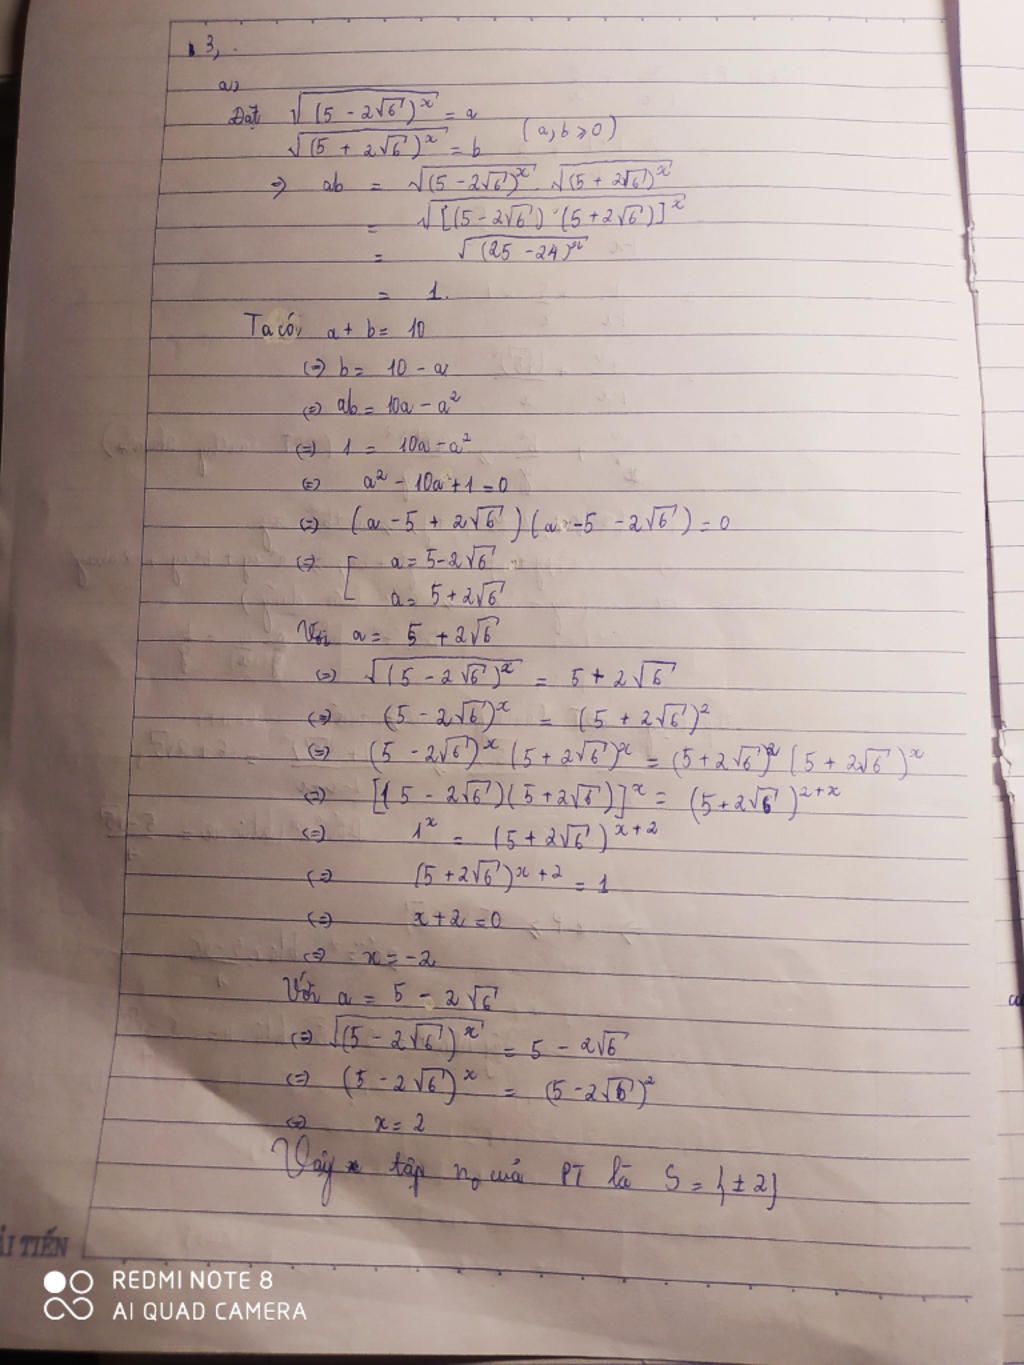 3,
a,
Đặt √(5 - 2√6)^x = a
√(5 + 2√6)^x = b (a, b ≥ 0)
=> ab = √(5 - 2√6)^x . √(5 + 2√6)^x
= √[(5 - 2√6) . (5 + 2√6)]^x
= √(25 - 24)^x
= 1.
Ta có, a + b = 10
(=) b = 10 - a
(=) ab = 10a - a²
(=) 1 = 10a - a²
(=) a² - 10a + 1 = 0
(=) (a - 5 + 2√6)(a - 5 - 2√6) = 0
(=) [ a = 5 - 2√6
a = 5 + 2√6
Với a = 5 + 2√6
(=) √(5 - 2√6)^x = 5 + 2√6
(=) (5 - 2√6)^x = (5 + 2√6)²
(=) (5 - 2√6)^x (5 + 2√6)^x = (5 + 2√6)² (5 + 2√6)^x
(=) [(5 - 2√6)(5 + 2√6)]^x = (5 + 2√6)^{2+x}
(=) 1^x = (5 + 2√6)^{x+2}
(=) (5 + 2√6)^{x+2} = 1
(=) x + 2 = 0
(=) x = -2
Với a = 5 - 2√6
(=) √(5 - 2√6)^x = 5 - 2√6
(=) (5 - 2√6)^x = (5 - 2√6)²
(=) x = 2
Vậy tập n₀ của PT là S = {±2}
ẢI TIẾN
REDMI NOTE 8
AI QUAD CAMERA